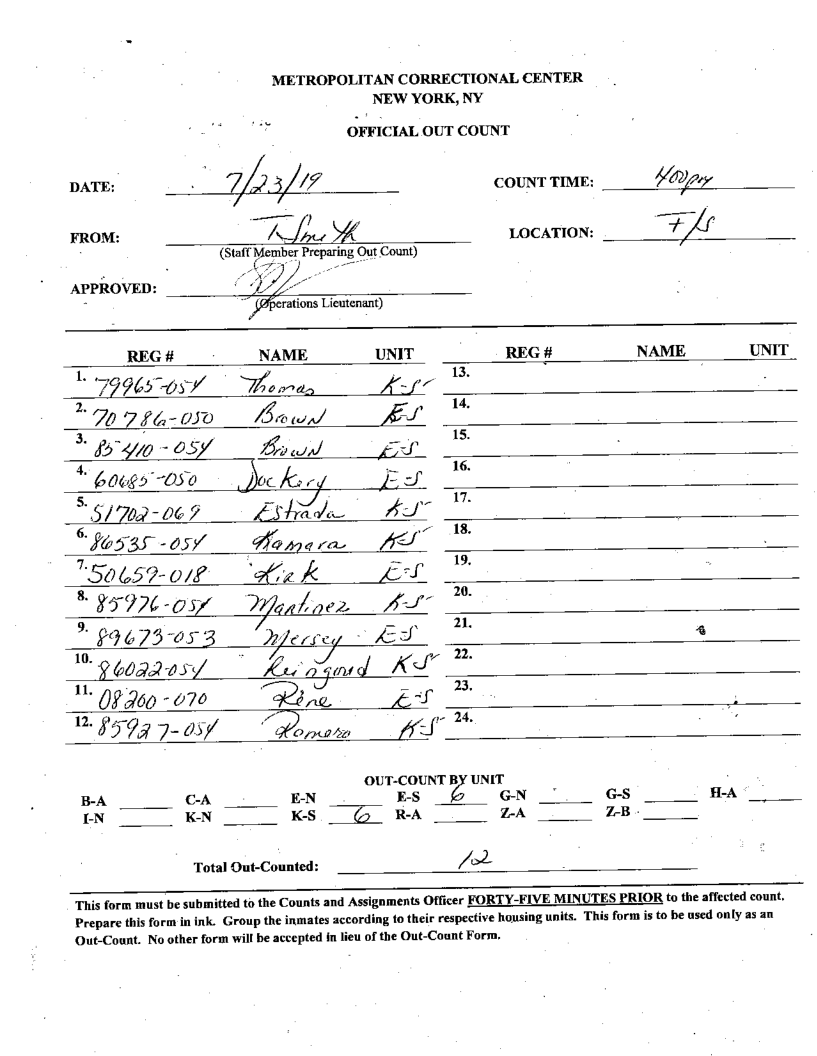 METROPOLITAN CORRECTIONAL CENTER
NEW YORK, NY
OFFICIAL OUT COUNT
DATE: 7/23/19 COUNT TIME: 400pm
FROM: T. Smith LOCATION: F/S
(Staff Member Preparing Out Count)
APPROVED:
(Operations Lieutenant)
REG # NAME UNIT REG # NAME UNIT
1. 79965-054 Thomas K-S 13.
2. 70786-050 Brown E-S 14.
3. 85410-054 Brown E-S 15.
4. 60685-050 Dockery E-S 16.
5. 51702-069 Estrada K-S 17.
6. 86535-054 Kamara K-S 18.
7. 50659-018 Kirk E-S 19.
8. 85976-054 Martinez K-S 20.
9. 89673-053 Mersey E-S 21.
10. 86022-054 Reingoud K-S 22.
11. 08200-070 Rene E-S 23.
12. 85927-054 Romero K-S 24.
OUT-COUNT BY UNIT
B-A C-A E-N E-S 6 G-N G-S H-A
I-N K-N K-S 6 R-A Z-A Z-B
Total Out-Counted: 12
This form must be submitted to the Counts and Assignments Officer FORTY-FIVE MINUTES PRIOR to the affected count.
Prepare this form in ink. Group the inmates according to their respective housing units. This form is to be used only as an
Out-Count. No other form will be accepted in lieu of the Out-Count Form.